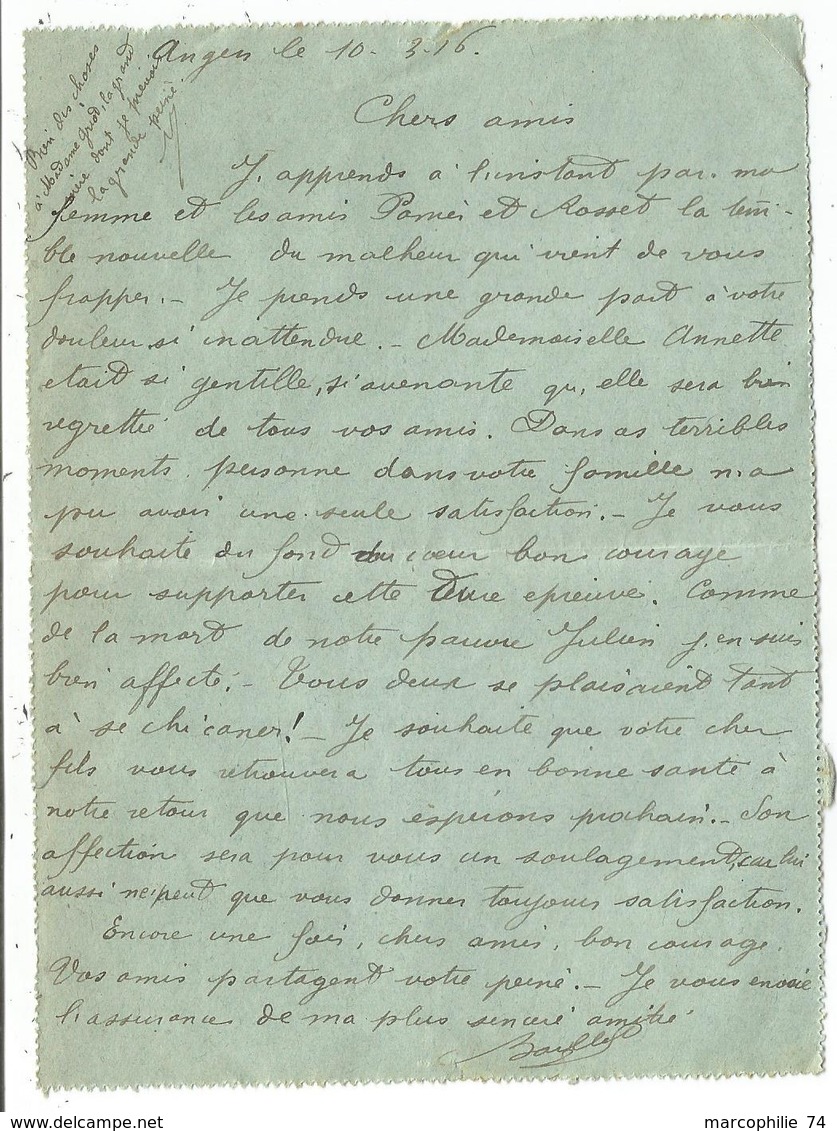 Angers le 10-3-16.
Bien des choses
à Madame Griod, la grand
mère dont je prévois
la grande peine
Chers amis
J'apprends à l'instant par ma
femme et les amis et Rosset la terri-
ble nouvelle du malheur qui vient de vous
frapper.- Je prends une grande part à votre
douleur si inattendue.- Mademoiselle Annette
etait si gentille, si avenante qu'elle sera bien
regrettée de tous vos amis. Dans ces terribles
moments personne dans votre famille n'a
pu avoir une seule satisfaction.- Je vous
souhaite du fond du cœur bon courage
pour supporter cette dure epreuve. Comme
de la mort de notre pauvre Julien j'en suis
bien affecté.- Tous deux se plaisaient tant
à se chicaner!- Je souhaite que votre cher
fils vous retrouvera tous en bonne santé à
notre retour que nous espérons prochain.- Son
affection sera pour vous un soulagement, car lui
aussi ne peut que vous donner toujours satisfaction.
Encore une fois, chers amis, bon courage.
Vos amis partagent votre peine.- Je vous envoie
l'assurance de ma plus sincère amitié
marcophilie 74